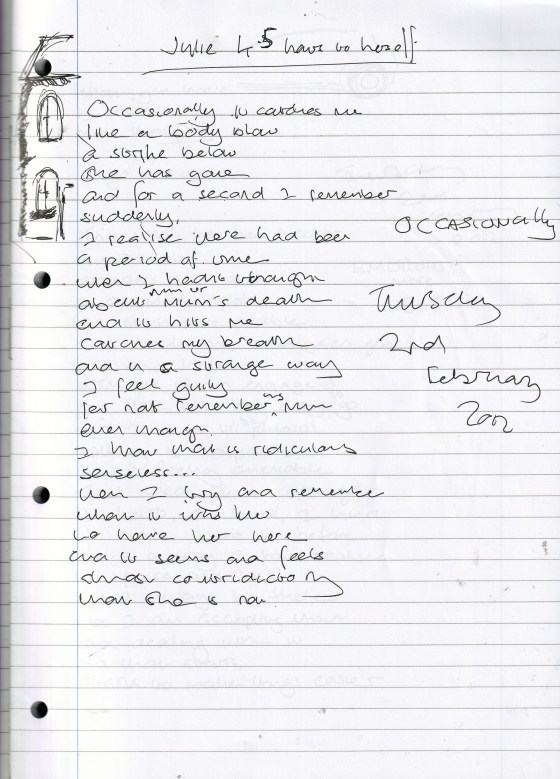 Julie 4-5 have to herself
Occasionally it catches me
like a body blow
a strike below
she has gone
and for a second I remember
suddenly,
I realise there had been
a period of time
when I hadn't thought
about mum or Mum's death
and it hits me
catches my breath
and in a strange way
I feel guilty
for not remembering Mum
even though
I know that is ridiculous
senseless...
when I try and remember
what it was like
to have her here
and it seems and feels
almost contradictory
that she is not
OCCASIONALLY
Thursday
2nd
February
2012